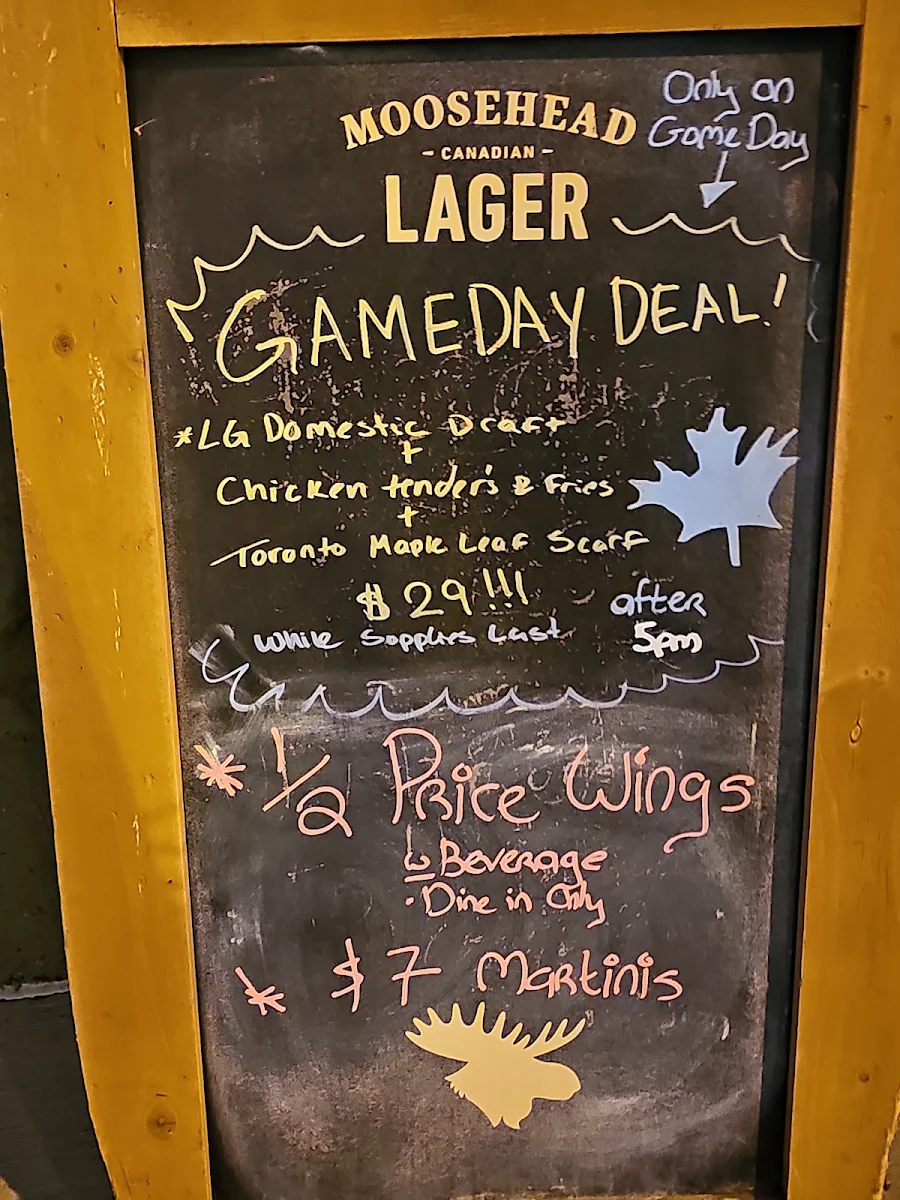 MOOSEHEAD
- CANADIAN -
LAGER
Only on
Game Day
GAMEDAY DEAL!
*LG Domestic Draft
+
Chicken tender's & Fries
+
Toronto Maple Leaf Scarf
$29!!!
after
5pm
While Supplies Last
* 1/2 Price Wings
w Beverage
• Dine in Only
* $7 Martinis